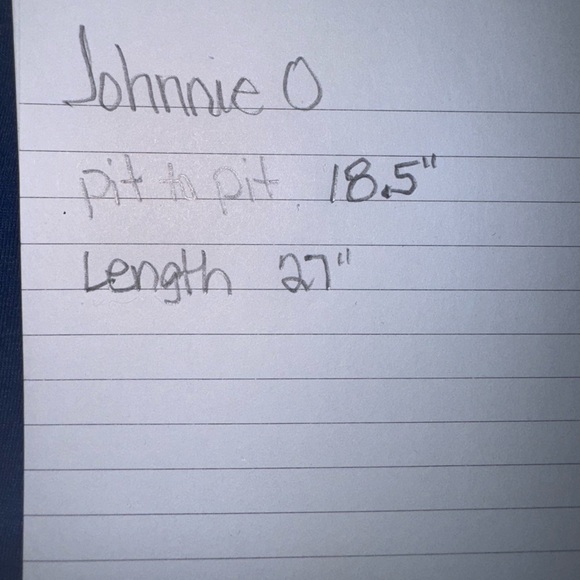 Johnnie O
pit to pit. 18.5"
Length 27"